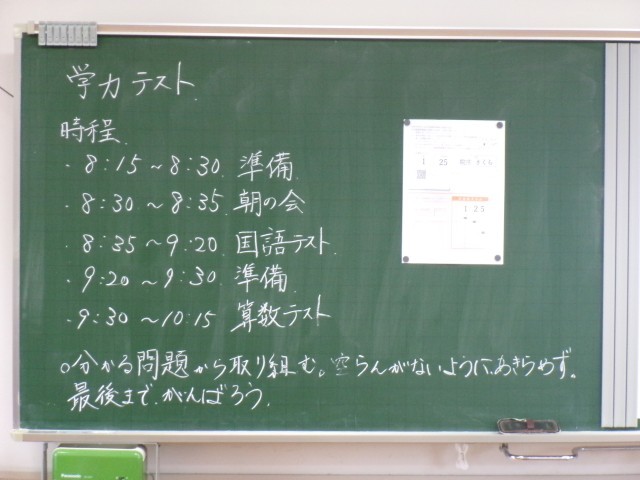 学力テスト
時程
・8:15～8:30 準備
・8:30～8:35 朝の会
・8:35～9:20 国語テスト
・9:20～9:30 準備
・9:30～10:15 算数テスト
○分かる問題から取り組む。空らんがないように、あきらめず。
最後まで、がんばろう。
1 25
125
Panasonic